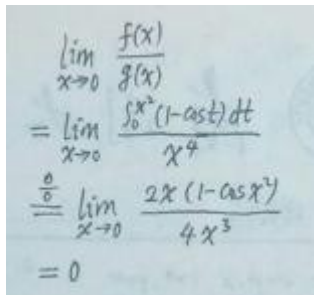 lim x→0 f(x)/g(x)
= lim x→0 ∫₀^x² (1-cost) dt / x⁴
0/0 = lim x→0 2x (1-cos x²) / 4x³
= 0